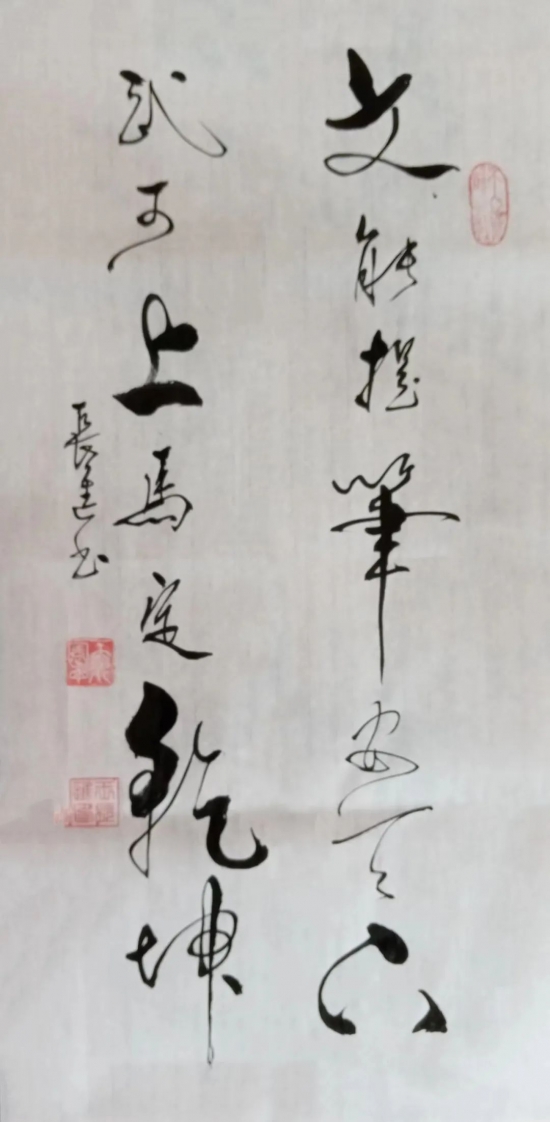 文能提筆安天下
武可上馬定乾坤
長達书